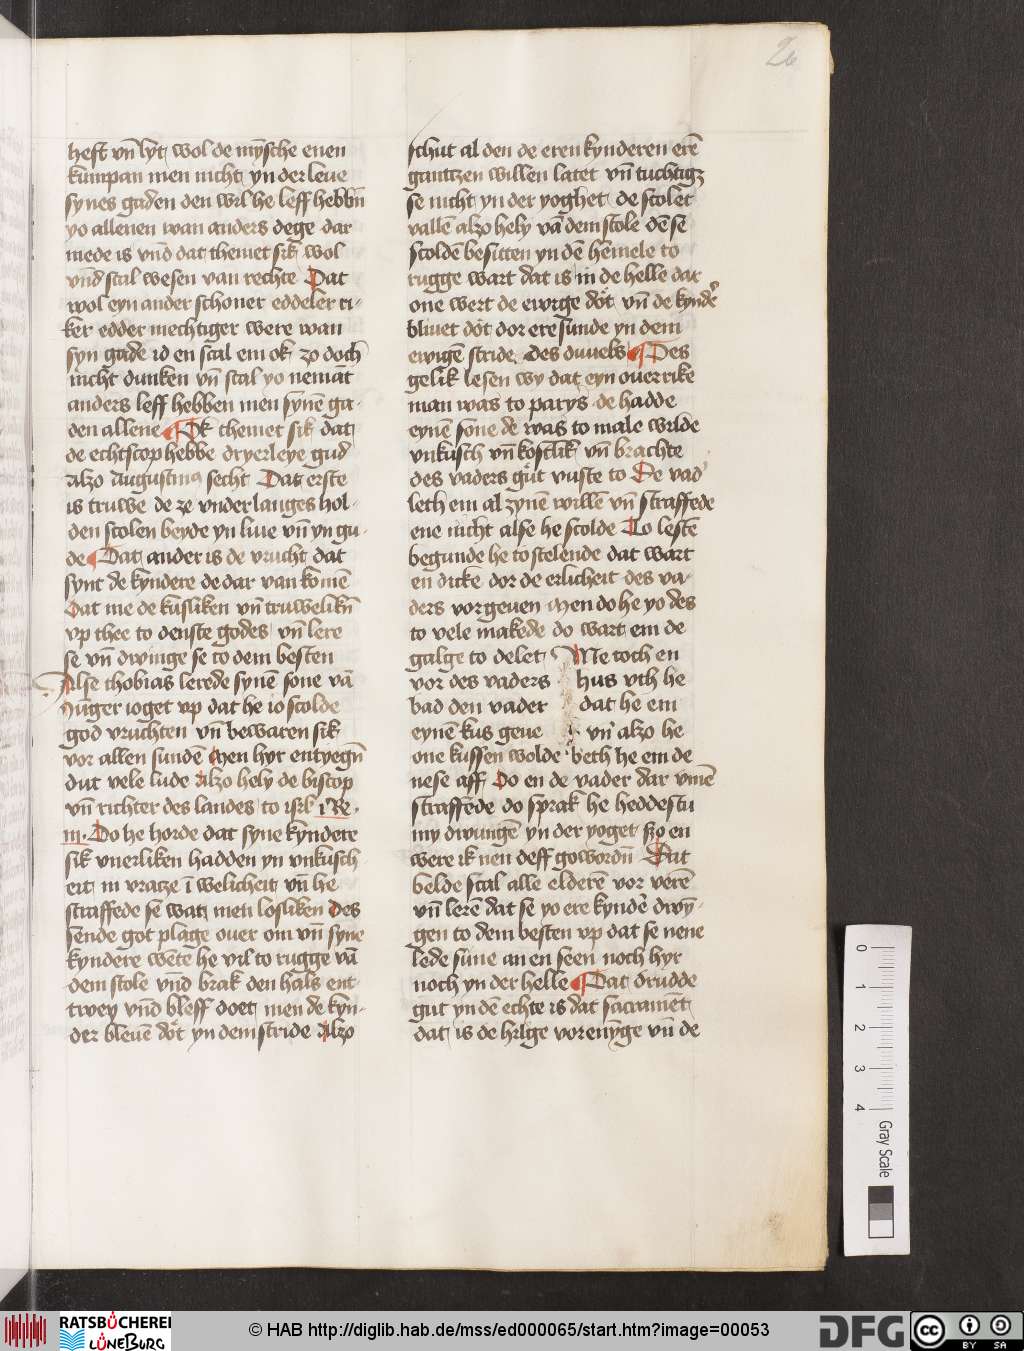 26
heft vn̄ lyt wol de mȳsche enen
kumpan men nicht yn der leue
synes gaden den wil he leff hebbn̄
yo allenen wan anders dege dar
mede is vn̄d dat themet sik wol
vn̄d scal wesen van rechte Dat
wol eyn ander schoner eddeler ri-
ker edder mechtiger were wan
syn gadē id en scal em ok zo doch
nicht dunken vn̄ scal yo nemāt
anders leff hebben men synē ga-
den allene Ok themet sik dat
de echtscop hebbe dryerleye gud
Alzo Augustinus secht Dat erste
is truwe de ze vnderlanges hol-
den scolen beyde yn liue vn̄ yn gu-
de Dat ander is de vrucht dat
synt de kyndere de dar van komē
Dat me de kusliken vn̄ truwelikn̄
vp thee to denste godes vn̄ lere
se vn̄ dwinge se to dem besten
Alse thobias lerede synē sone vā
yūger ioget vp dat he io scolde
god vruchten vn̄ bewaren sik
vor allen sundē Men hyr entyegn̄
dut vele lude Alzo hely de biscop
vn̄ richter des landes to isrl̄ i Re
iii Do he horde dat syne kyndere
sik vnerliken hadden yn vnkusch-
eit in vratze ī welicheit vn̄ he
straffede se wat men losliken Des
sende got plage ouer om vn̄ syne
kyndere wēte he vil to rugge vā
dem stole vn̄d brak den hals ent-
twey vn̄d bleff doet men de kyn-
der bleuē dot yn dem stride Alzo
schut al den de eren kynderen erē
gantzen willen latet vn̄ tuchtigē
se nicht yn der yoghet de scolet
vallē alzo hely vā dem stole dē se
scoldē besitten yn dē hemele to
rugge wart dat is in de helle dar
one wert de ewige dot vn̄ de kynder
bliuet dot dor ere sunde yn dem
ewigē stride des duuels Des
gelik lesen wy dat eyn ouerrike
man was to parys de hadde
eynē sone de was to male wilde
vnkusch vn̄ kostlik vn̄ brachte
des vaders gut vuste to De vader
leth em al zynē willē vn̄ straffede
ene nicht alse he scolde To lestē
begunde he to stelende dat wart
en dicke dor de erlicheit des va-
ders vorgeuen Men do he yo des
to vele makede do wart em de
galge to delet Me toch en
vor des vaders hus vth he
bad den vader dat he em
eynē kus geue vn̄ alzo he
one kussen wolde beth he em de
nese aff Do en de vader dar vmē
straffede do sprak he heddestu
my dwungē yn der yoget szo en
were ik nen deff gewordn̄ Dat
belde scal alle elderē vor verē
vn̄ lerē dat se yo ere kyndē dwȳ-
gen to dem besten vp dat se nene
lede sūne an en seen noch hyr
noch yn der helle Dat drudde
gut yn dē echte is dat sacramēt
dat is de hilge vorenȳge vn̄ de
0
1
2
3
4
Gray Scale
RATSBÜCHEREI
LÜNEBURG
© HAB http://diglib.hab.de/mss/ed000065/start.htm?image=00053
DFG
cc
BY SA